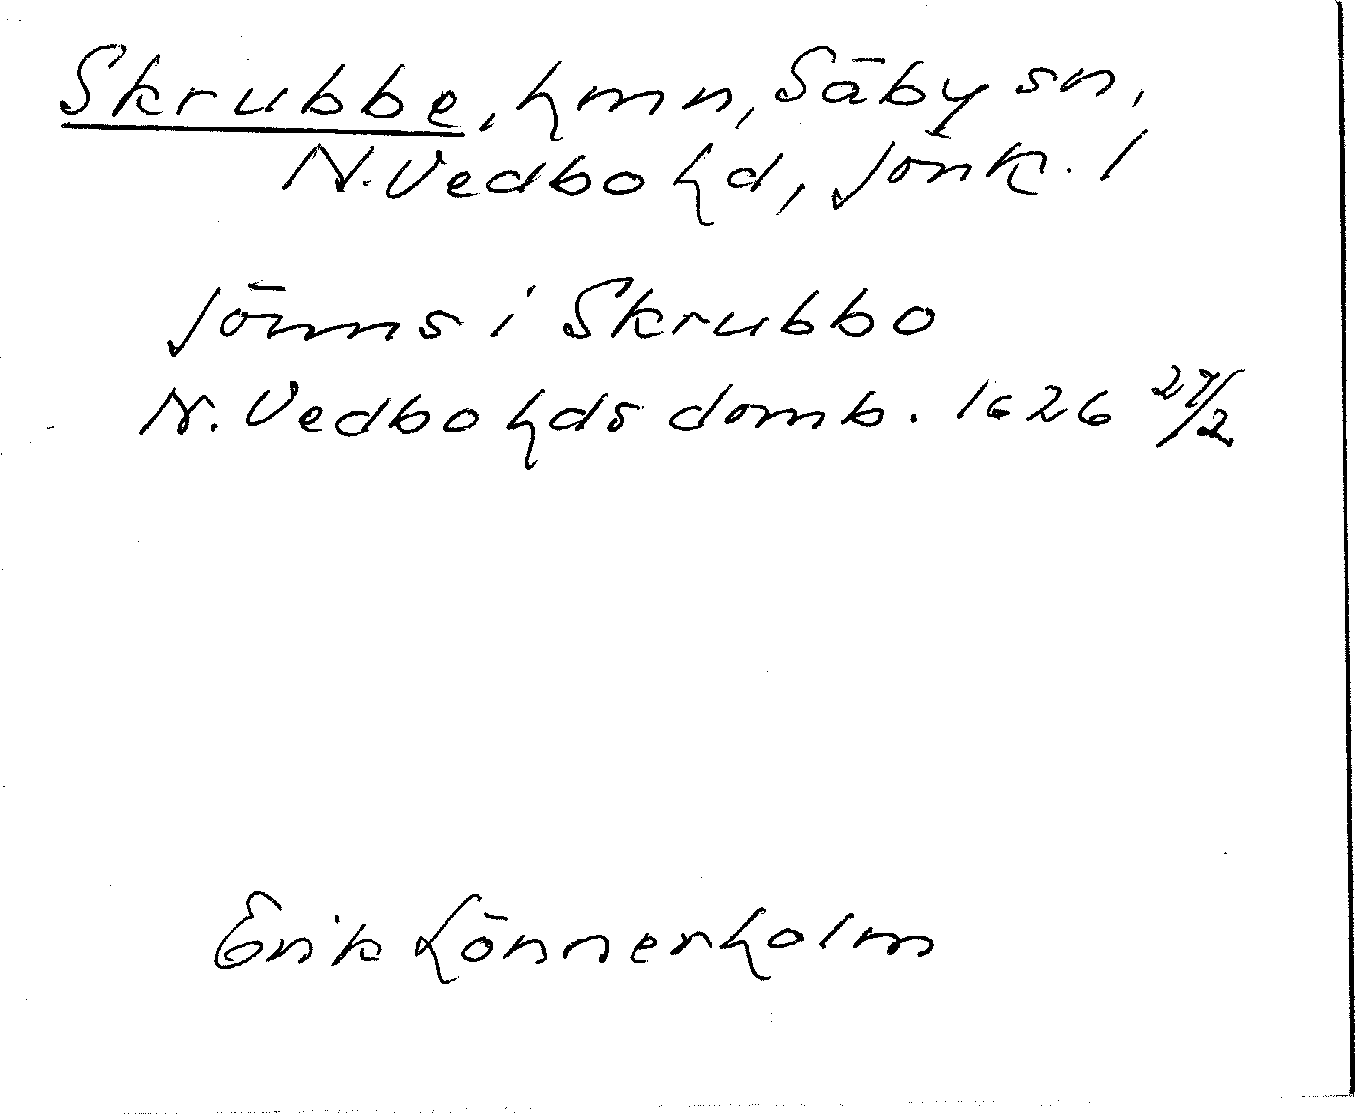 Skrubbe, hmn, Säby sn,
N. Vedbo hd, Jönk. l
Jöns i Skrubbo
N. Vedbo hds domb. 1626 27/2
Erik Lönnerholm